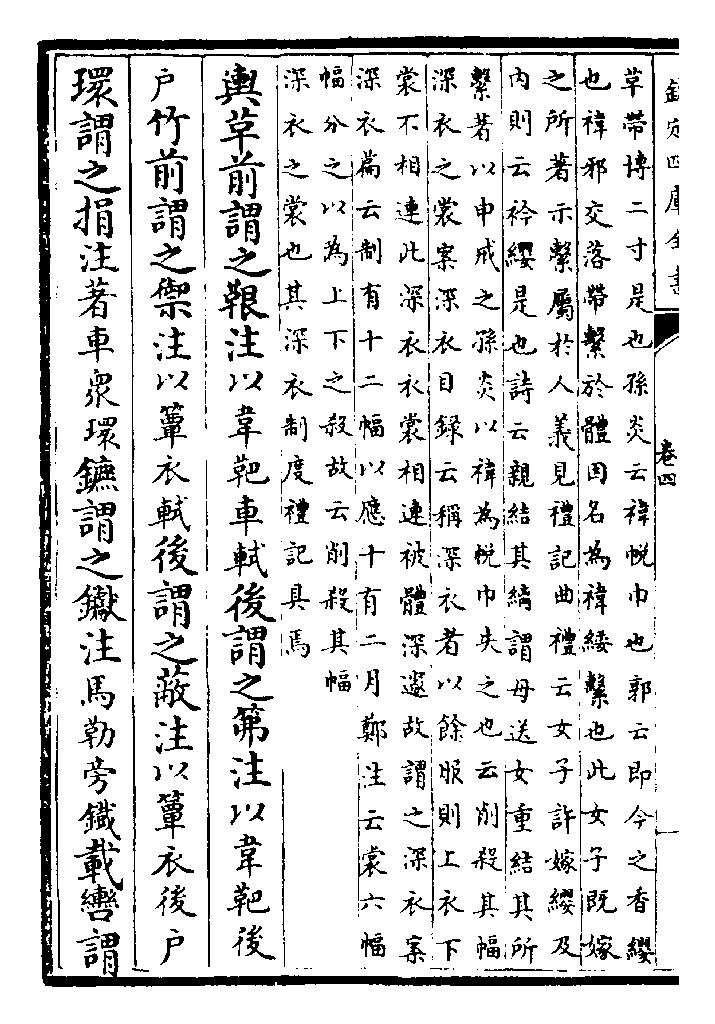 欽定四庫全書
卷四
革帶博二寸是也孫炎云褘帨巾也郭云即今之香纓
也褘邪交落帶繫於體因名為褘緌繫也此女子既嫁
之所著示繫屬於人義見禮記曲禮云女子許嫁纓及
內則云衿纓是也詩云親結其縭謂母送女重結其所
繫著以申戒之孫炎以褘為帨巾失之也云削殺其幅
深衣之裳案深衣目録云稱深衣者以餘服則上衣下
裳不相連此深衣衣裳相連被體深邃故謂之深衣案
深衣篇云制有十二幅以應十有二月鄭注云裳六幅
幅分之以為上下之殺故云削殺其幅
深衣之裳也其深衣制度禮記具焉
輿革前謂之鞎注以韋靶車軾後謂之笰注以韋靶後
户竹前謂之禦注以簟衣軾後謂之蔽注以簟衣後户
環謂之捐注著車衆環鑣謂之钀注馬勒旁鐵載轡謂